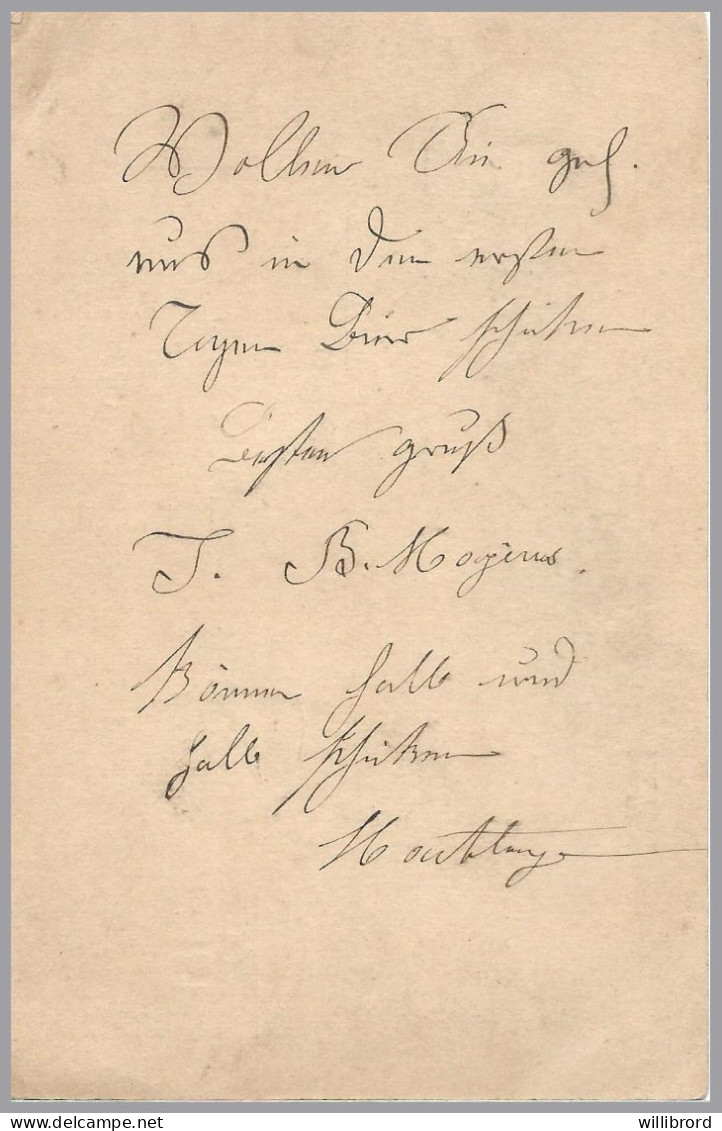 Wollen Sie gef.
uns in den ersten
Tagen Bier schicken
Besten gruß
J. B. Moyens.
Können halb und
halb schicken
willibrord